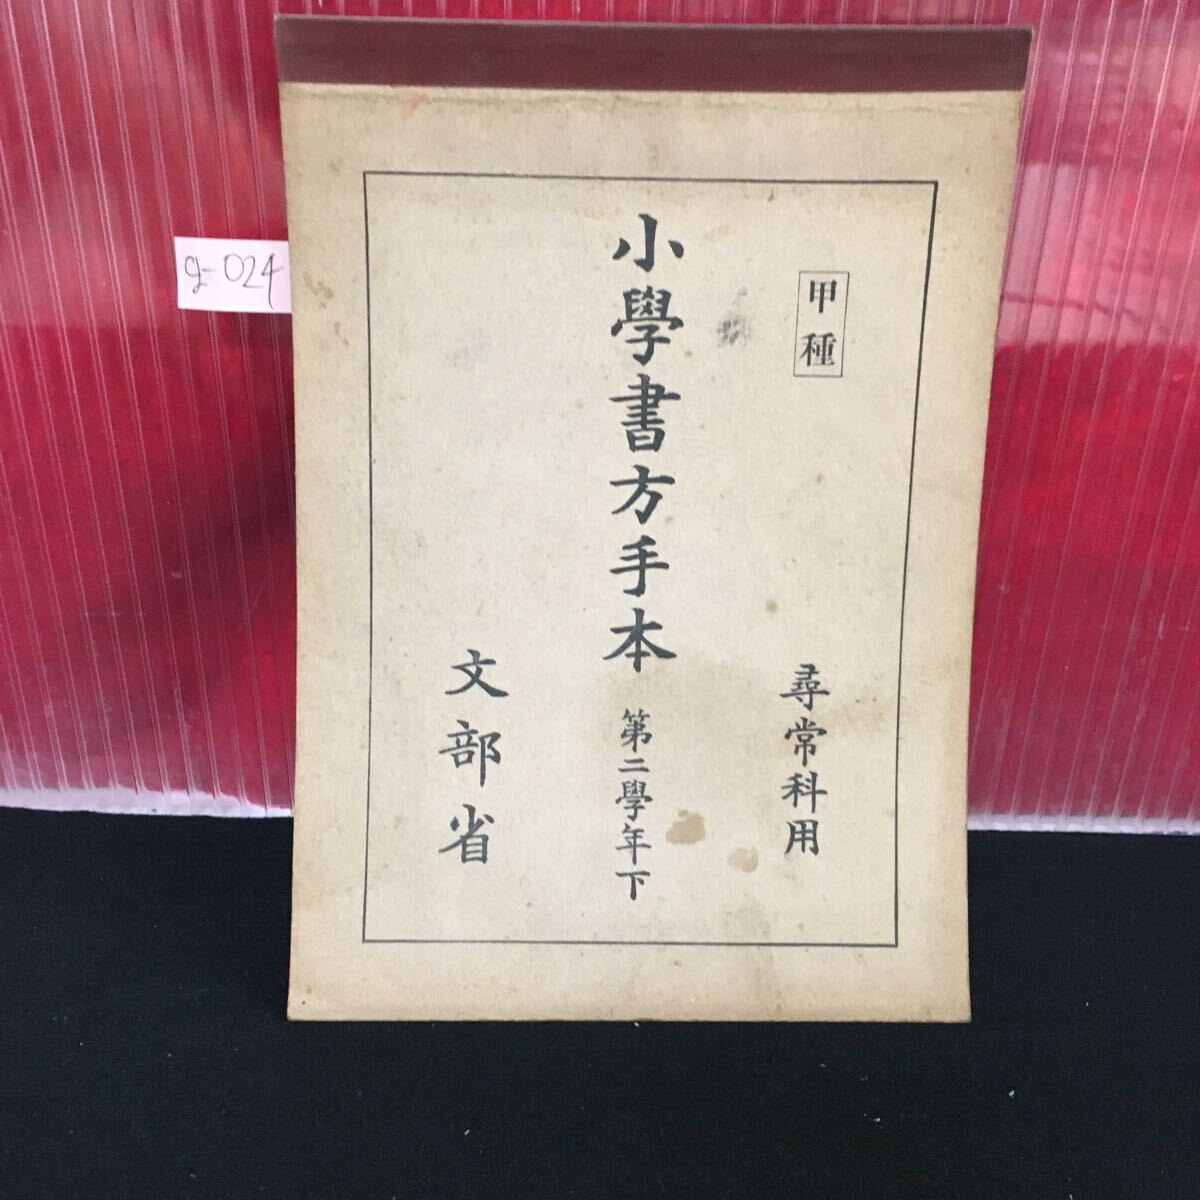 甲種
尋常科用
小學書方手本 第二學年下
文部省
g-024